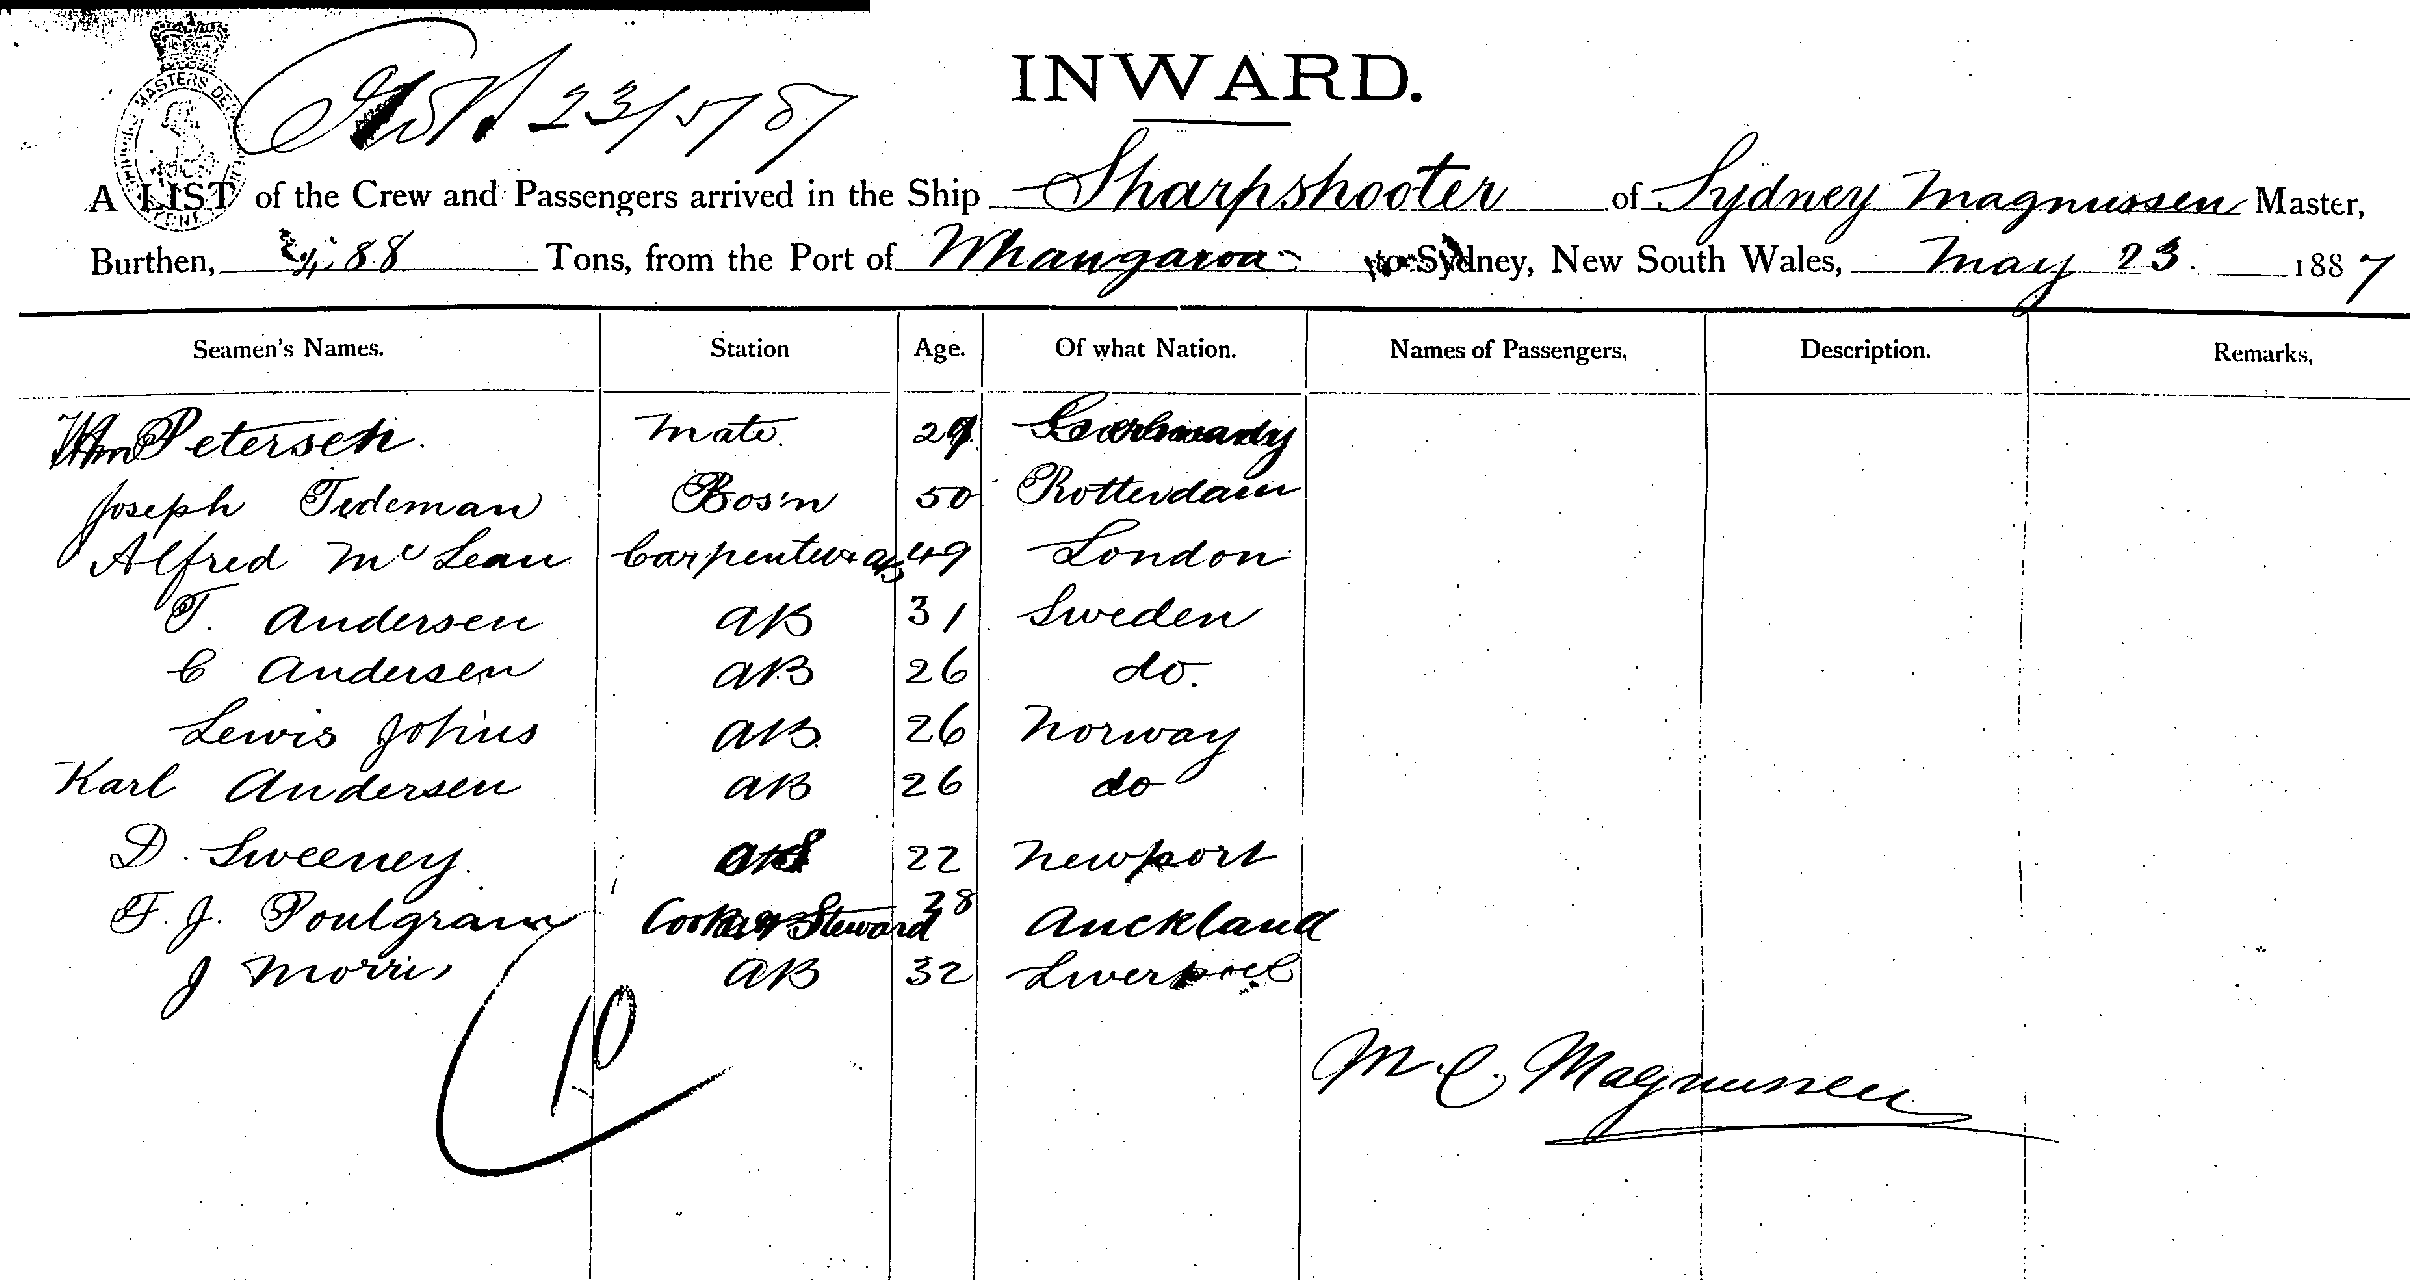 23/5/87
INWARD.
A LIST of the Crew and Passengers arrived in the Ship Sharpshooter of Sydney Magnussen Master,
Burthen, 88 Tons, from the Port of Whangaroa to Sydney, New South Wales, May 23. 1887
Seamen's Names. Station Age. Of what Nation. Names of Passengers, Description. Remarks,
Wm Petersen. Mate. Germany
Joseph Tideman Bos'n 50 Rotterdam
Alfred Mc Lean Carpenter & AB 49 London
T. Andersen AB 31 Sweden
C Andersen AB 26 do.
Lewis Johns AB 26 Norway
Karl Andersen AB 26 do
D. Sweeney. 22 Newport
F. J. Poulgrain Cook & Steward 28 Auckland
J Morris AB 32 Liverpool
10
M. C. Magnussen